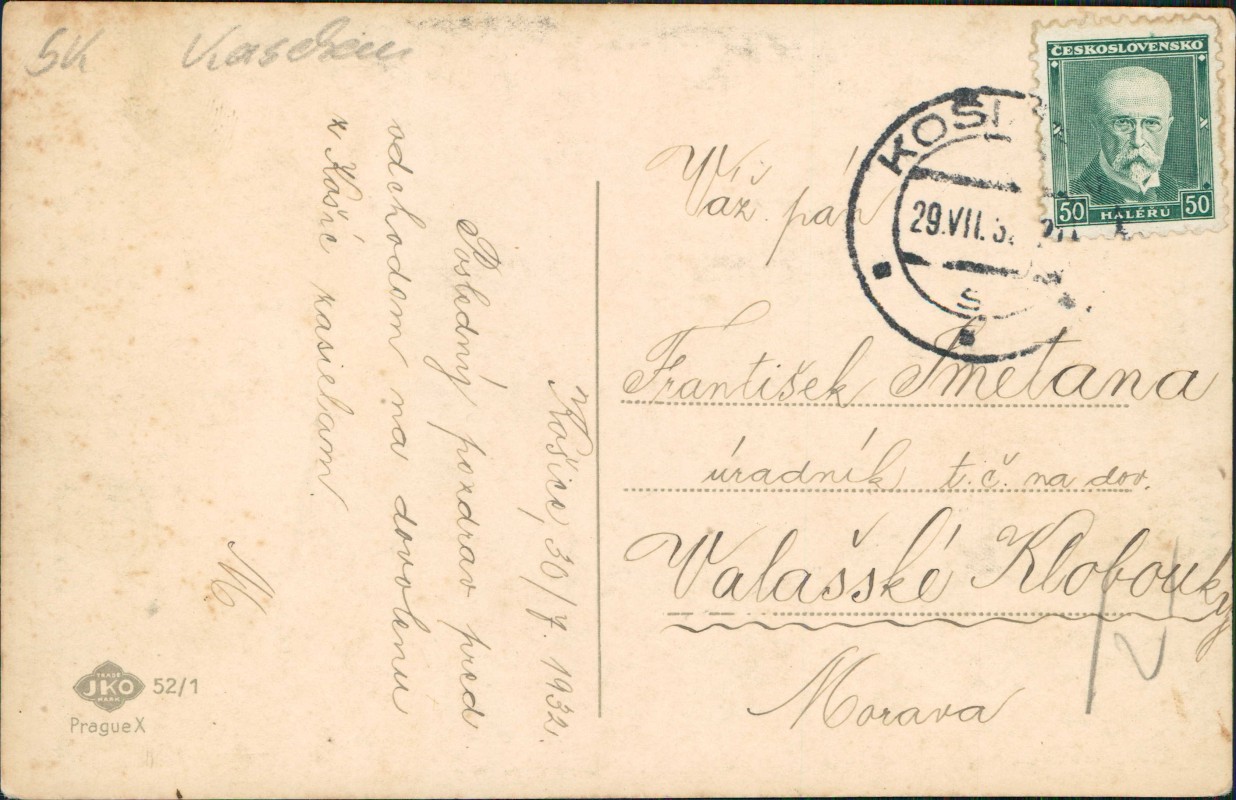 SK Kaschau
Košice, 30/7. 1932.
Posledný pozdrav pred
odchodom na dovolenú
z Košíc zasielam
M
JKO
TRADE
MARK
52/1
Prague X
ČESKOSLOVENSKO
50 HALÉŘŮ 50
KOŠI
29.VII.3
S
Váž. pán
František Smetana
úradník t.č. na dov.
Valašské Klobouky
Morava